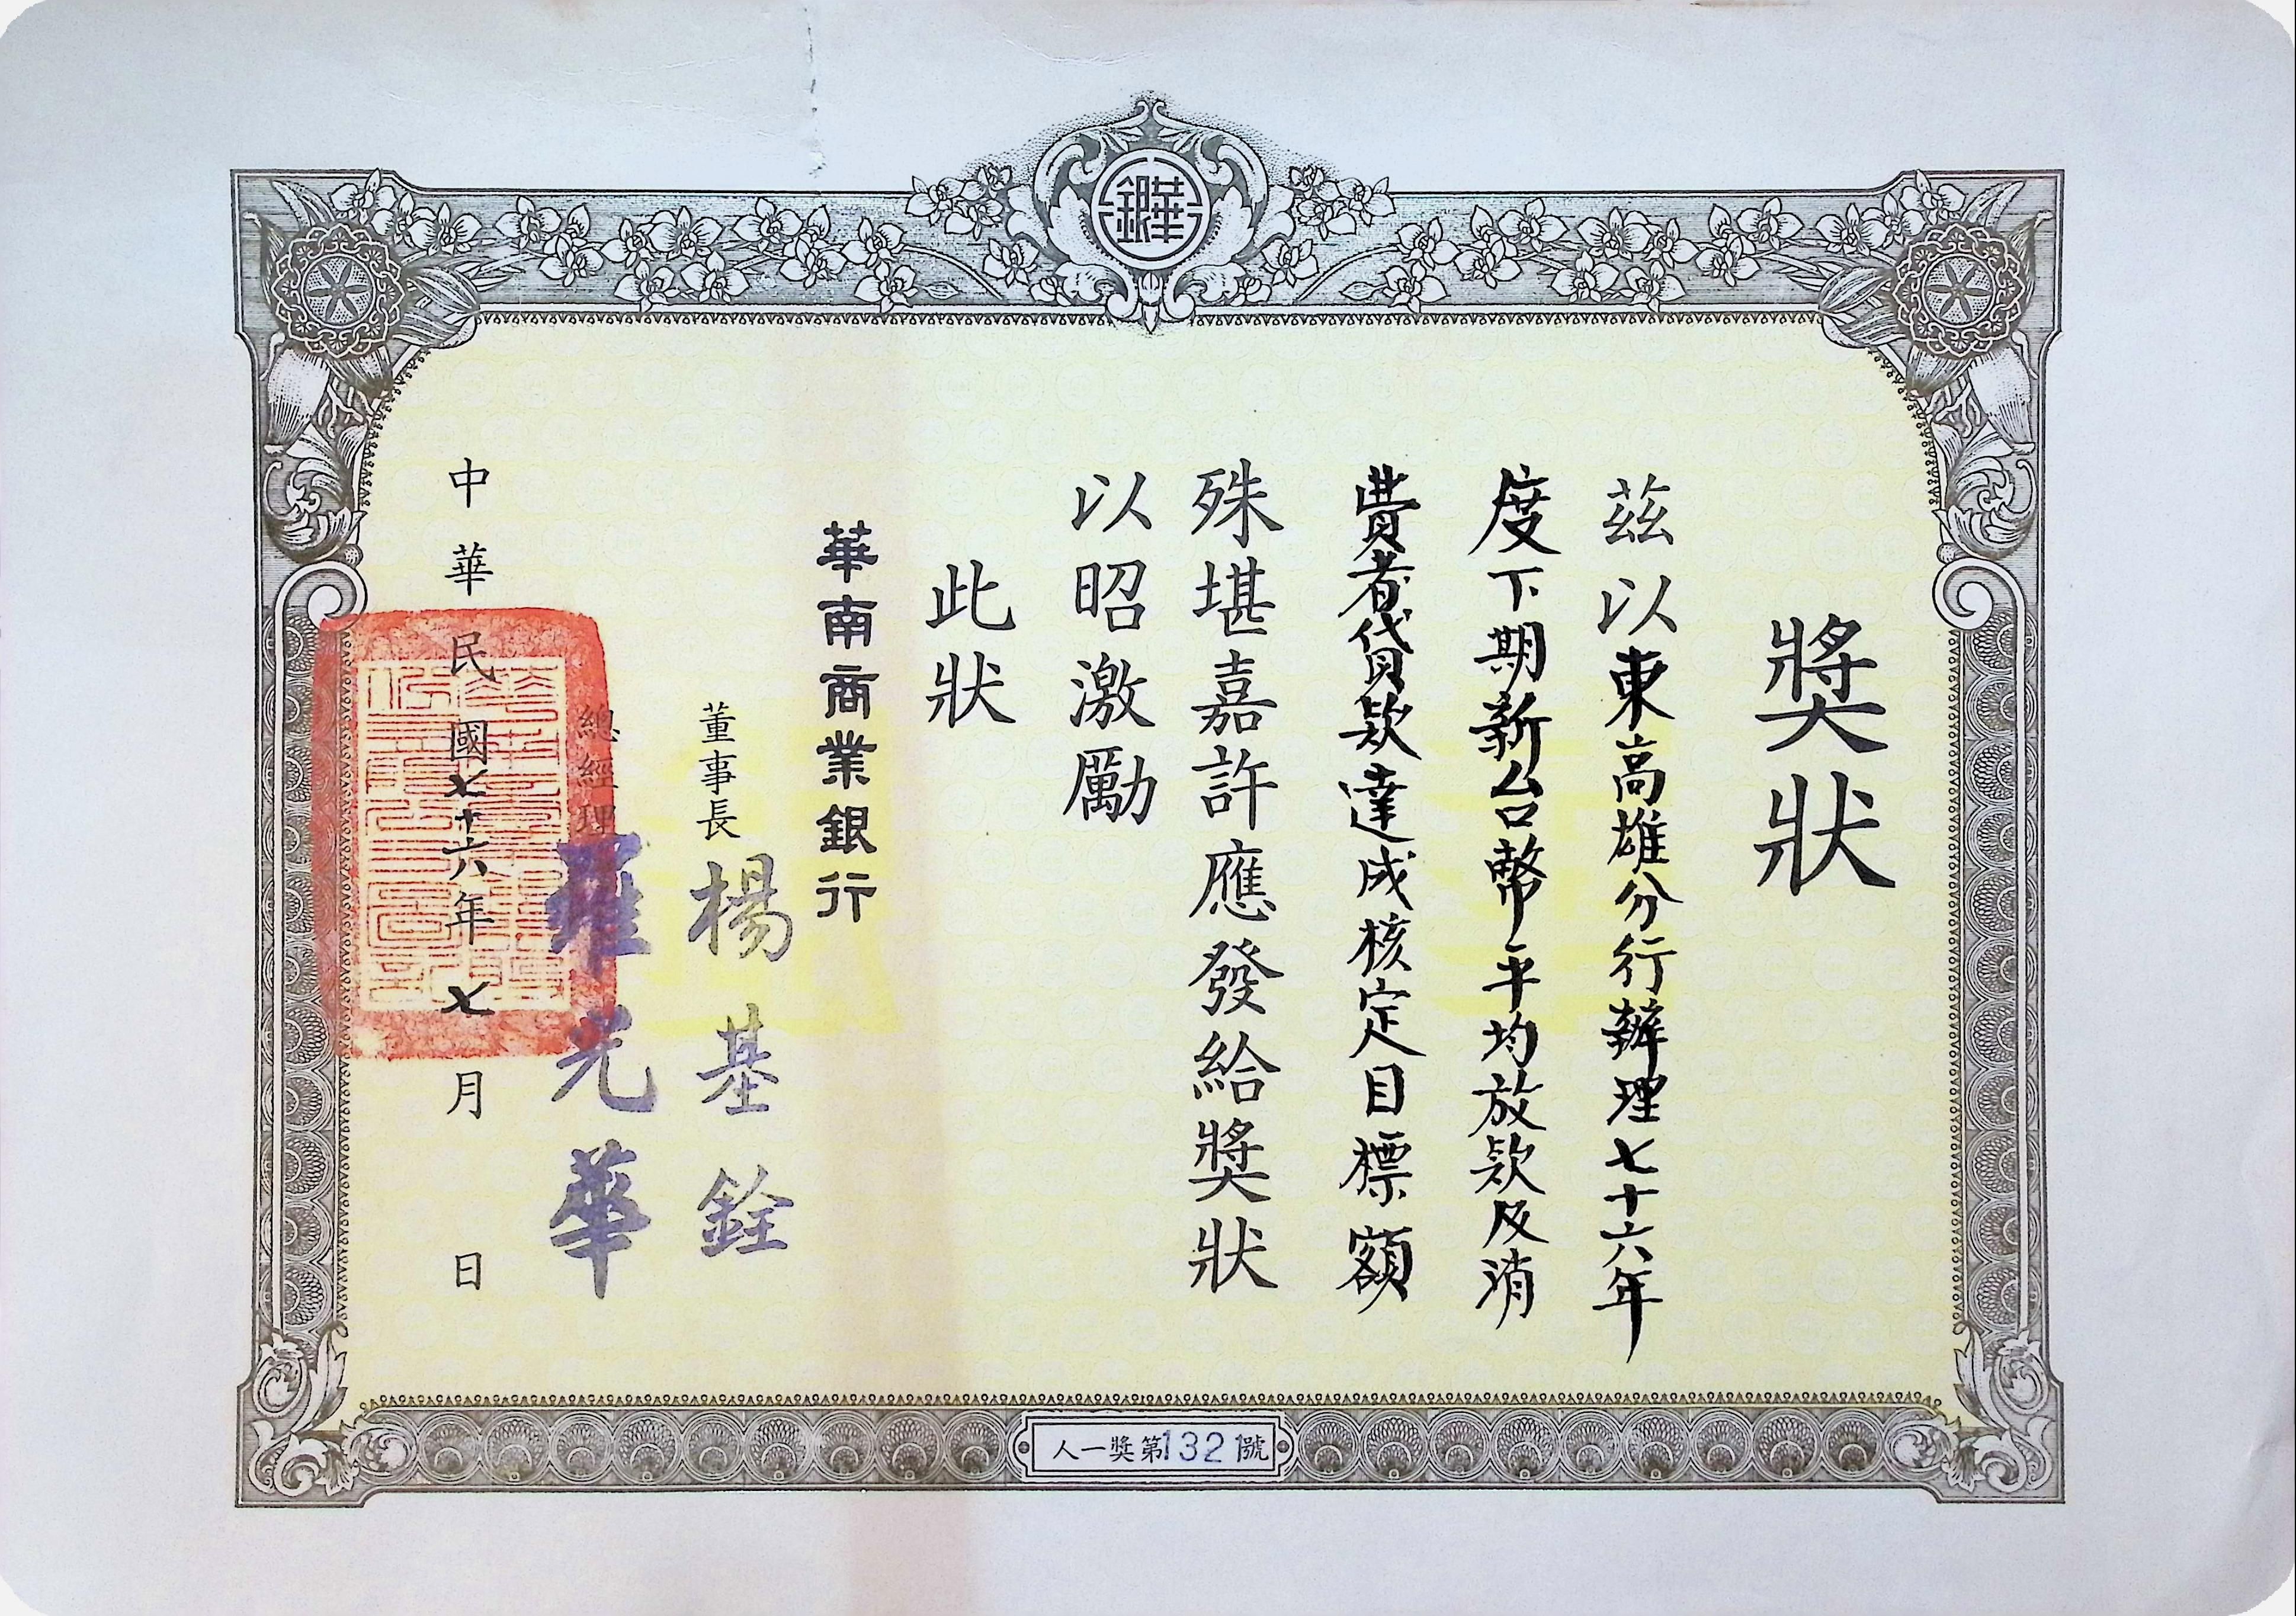 華銀
獎狀
茲以東高雄分行辦理七十六年
度下期新台幣平均放款及消
費者貸款達成核定目標額
殊堪嘉許應發給獎狀
以昭激勵
此狀
華南商業銀行
董事長 楊基銓
總經理 羅光華
中華民國七十六年七月 日
人一獎第1321號